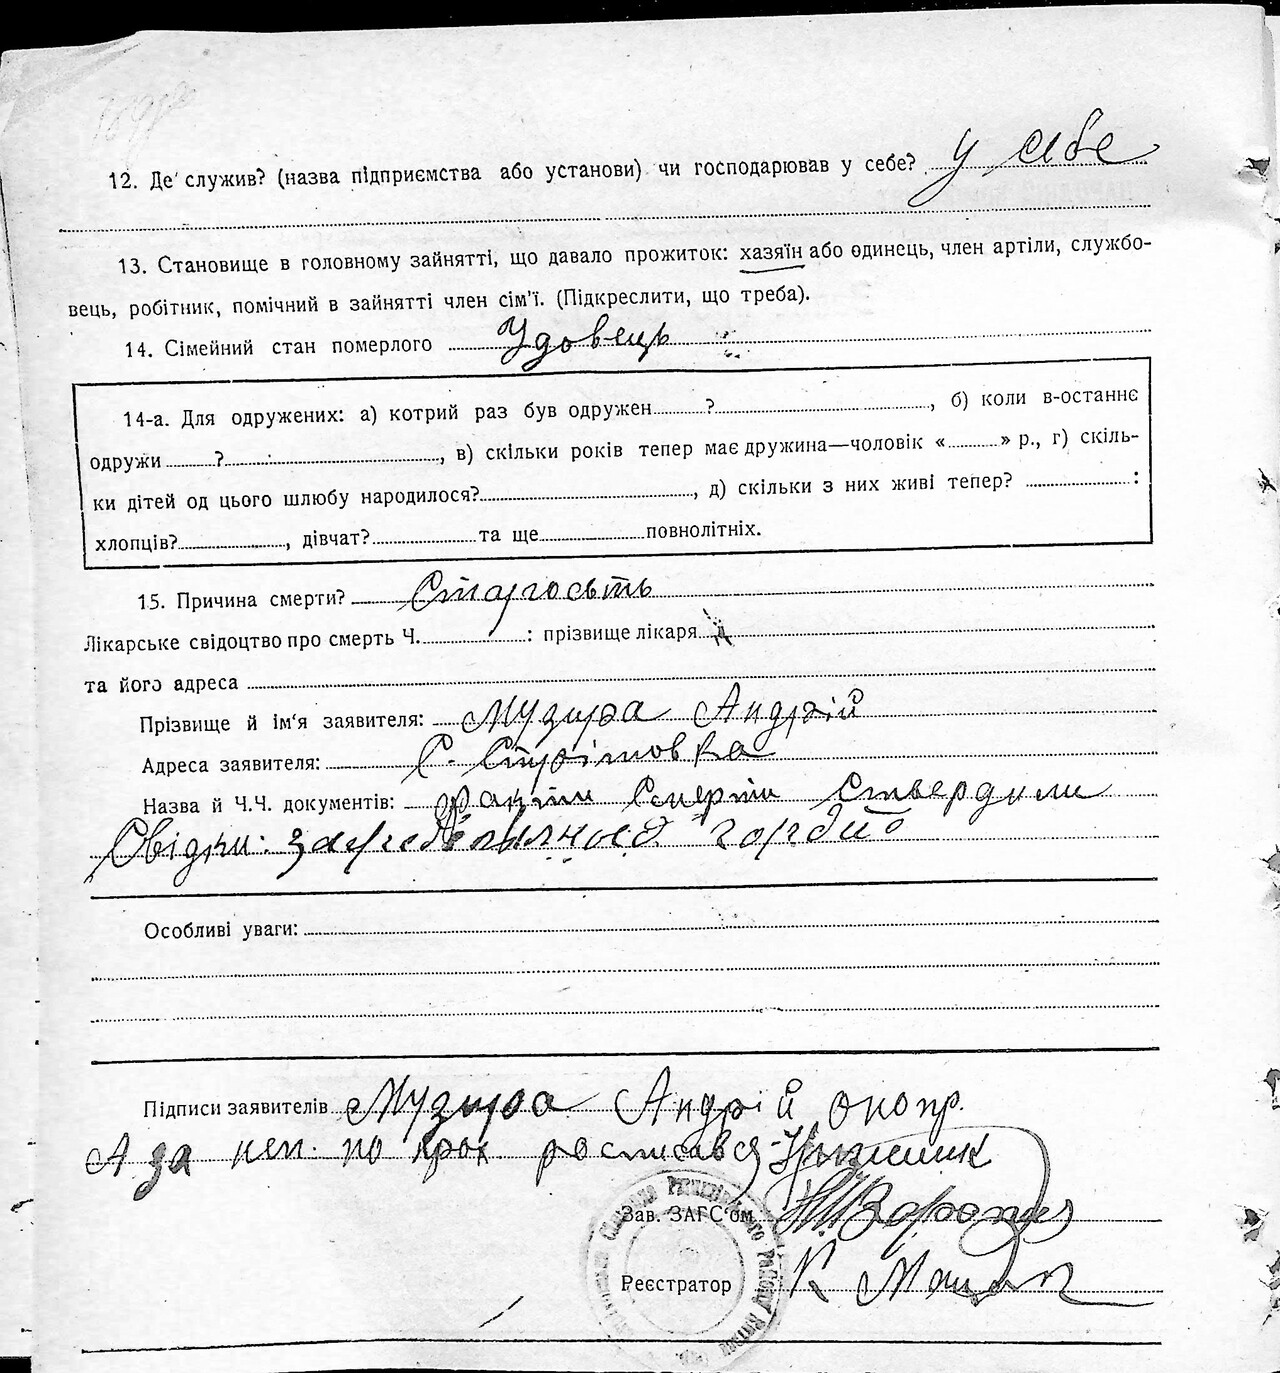 12. Де служив? (назва підприємства або установи) чи господарював у себе? у себе
13. Становище в головному зайнятті, що давало прожиток: хазяїн або одинець, член артіли, службо-
вець, робітник, помічний в зайнятті член сім'ї. (Підкреслити, що треба).
14. Сімейний стан померлого Удовець
14-а. Для одружених: а) котрий раз був одружен ? , б) коли в-останнє
одружи ? , в) скільки років тепер має дружина—чоловік « » р., г) скіль-
ки дітей од цього шлюбу народилося? , д) скільки з них живі тепер? :
хлопців? , дівчат? та ще повнолітніх.
15. Причина смерти? Старость
Лікарське свідоцтво про смерть Ч. : прізвище лікаря
та його адреса
Прізвище й ім'я заявителя: Музира Андрій
Адреса заявителя: С. Стрітовка
Назва й Ч.Ч. документів: Факти Смерти Ствердили
Свідки:
Особливі уваги:
Підписи заявителів Музира Андрій
А за неп. по прох. росписався
Зав. ЗАГС'ом
Реєстратор К.